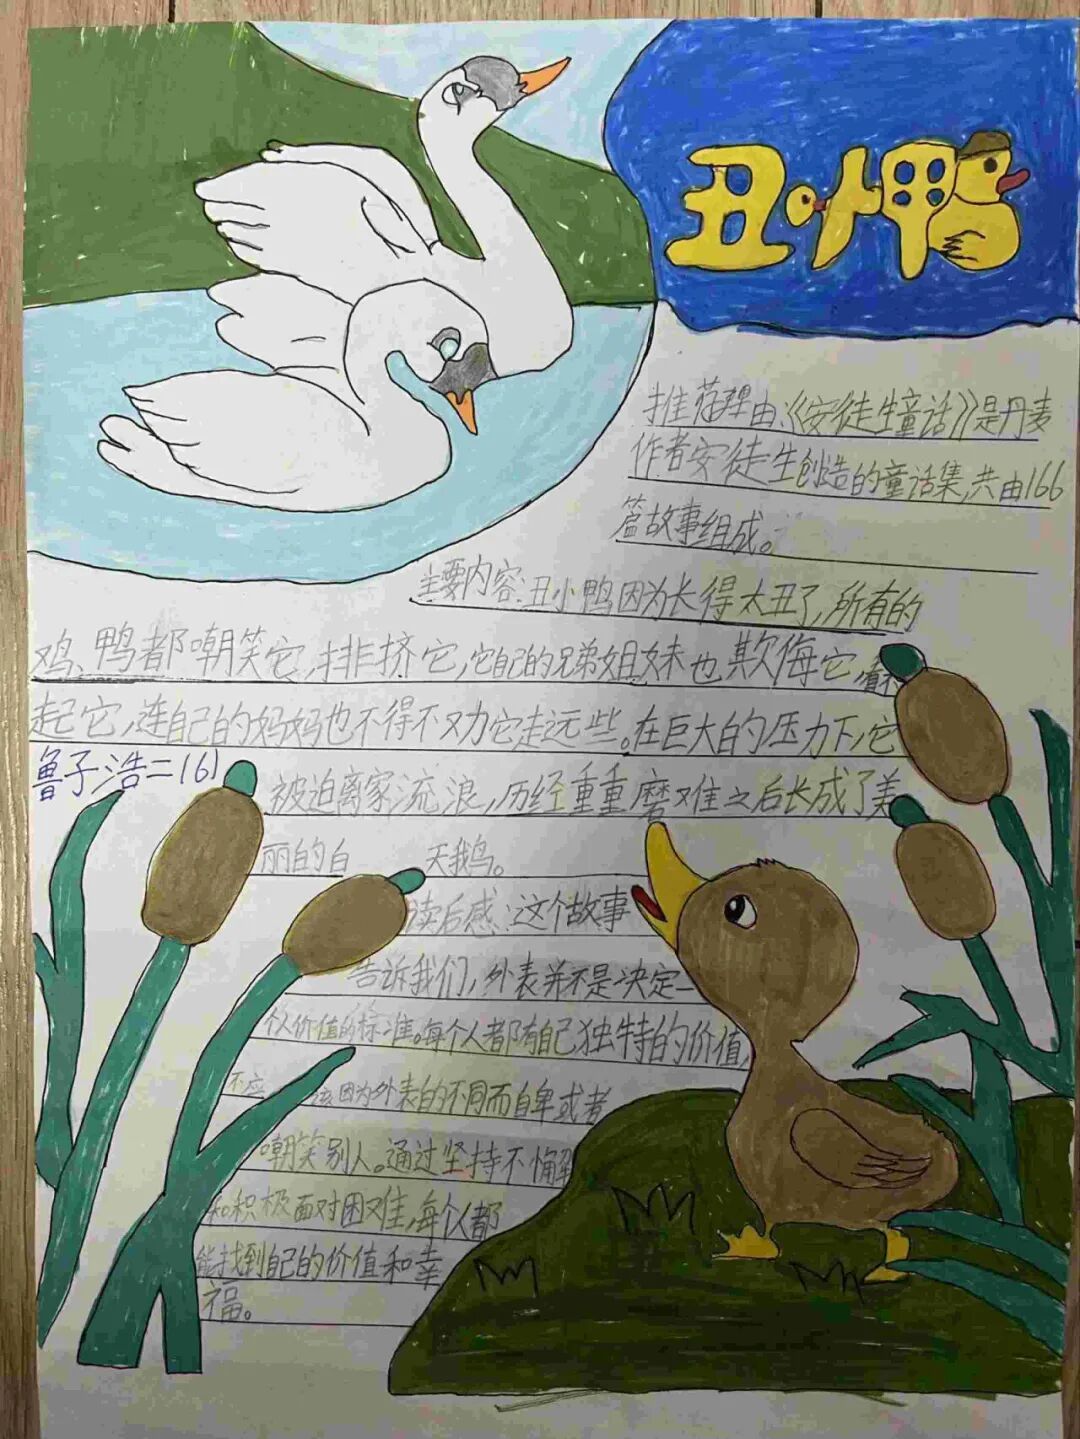 丑小鸭
推荐理由:《安徒生童话》是丹麦
作者安徒生创造的童话集,共由166
篇故事组成。
主要内容:丑小鸭因为长得太丑了,所有的
鸡、鸭都嘲笑它,排挤它,它自己的兄弟姐妹也欺侮它,看不
起它,连自己的妈妈也不得不劝它走远些。在巨大的压力下,它
鲁子浩二(6)
被迫离家流浪,历经重重磨难之后长成了美
丽的白 天鹅。
读后感:这个故事
告诉我们,外表并不是决定一
个人价值的标准。每个人都有自己独特的价值,
不应 该因为外表的不同而自卑或者
嘲笑别人。通过坚持不懈
和积极面对困难,每个人都
能找到自己的价值和幸
福。